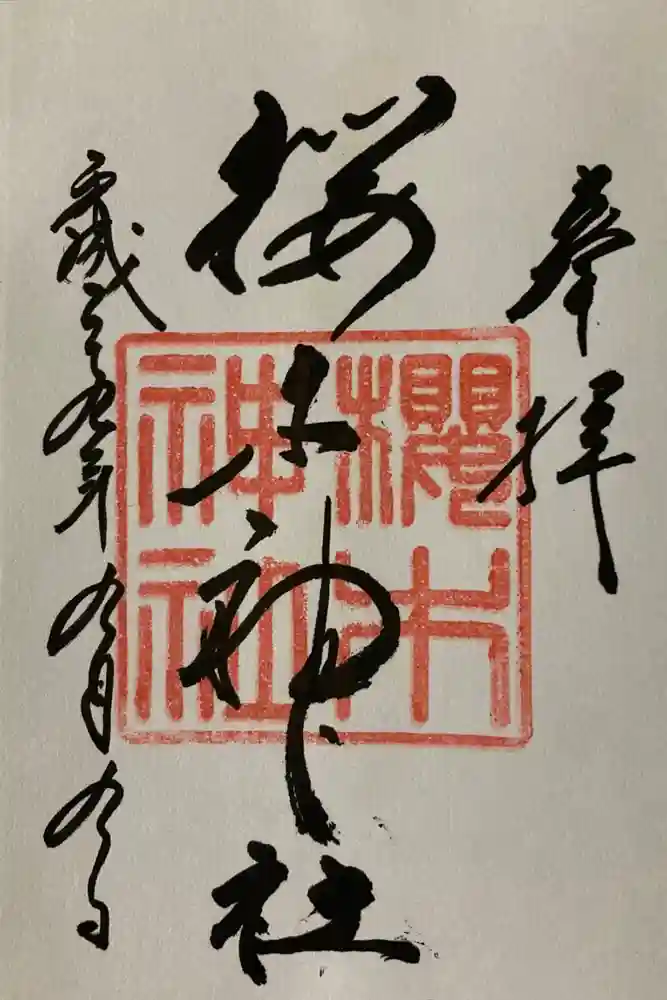 奉拝
桜木神社
櫻木神社
平成二十九年九月九日